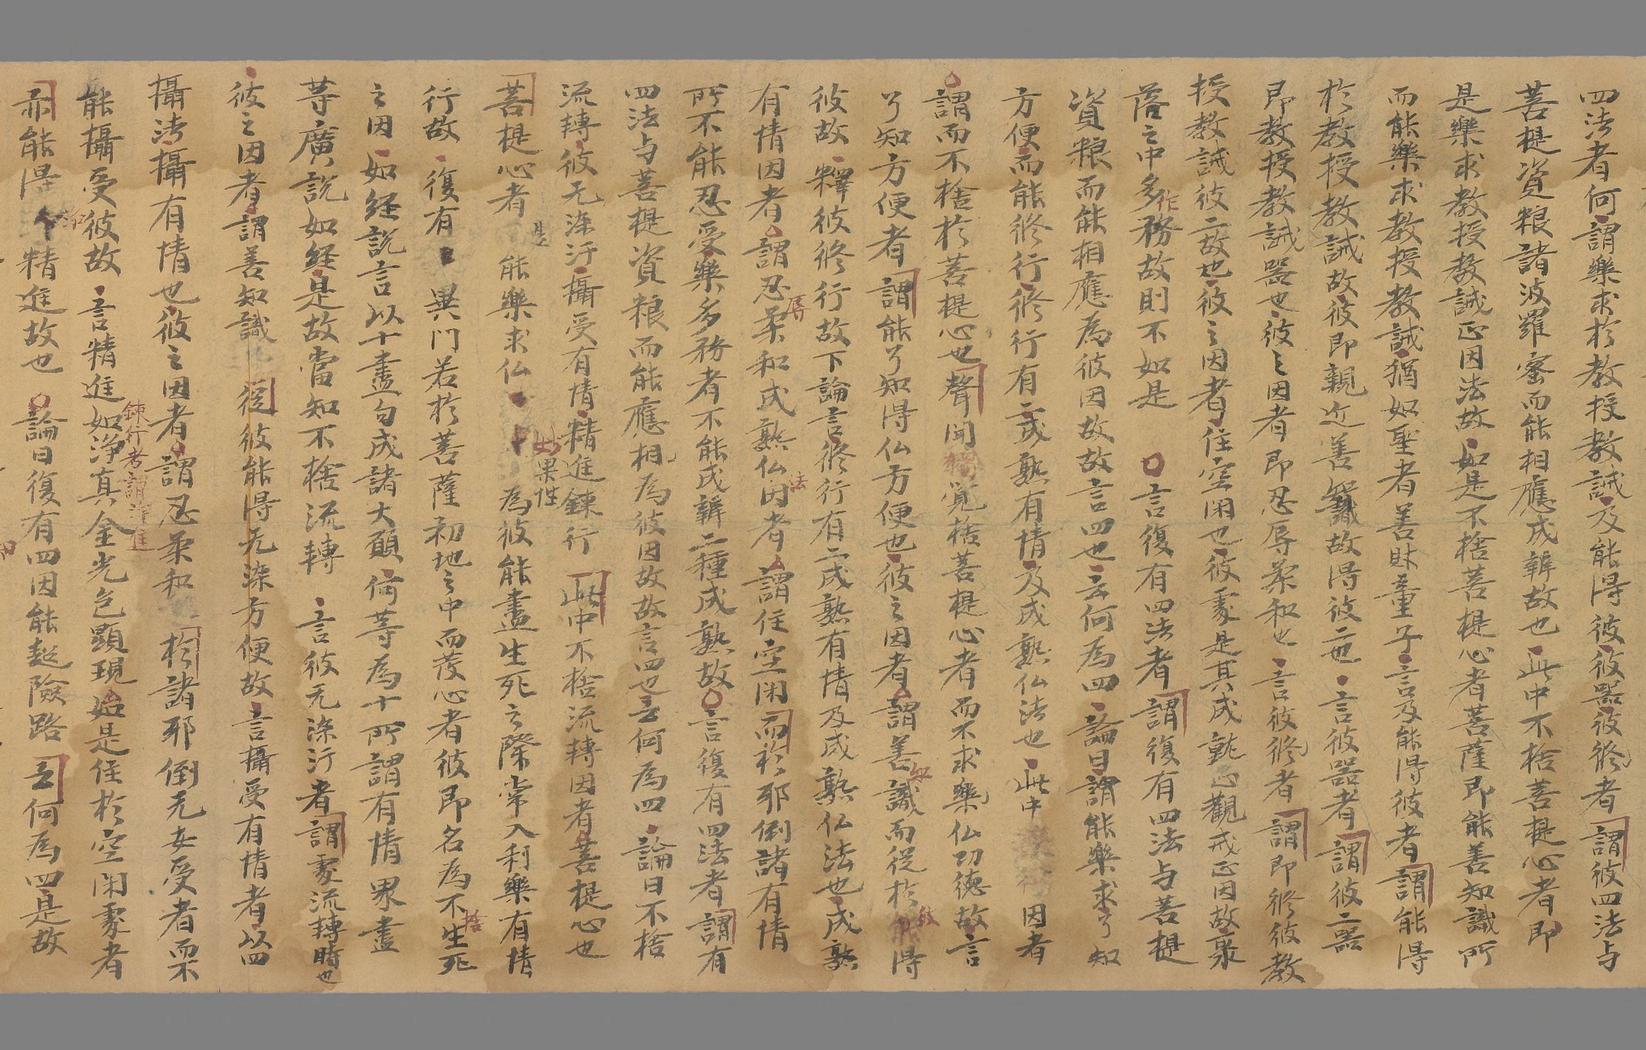 四法者何謂樂求於教授教誡及能得彼彼器彼修者謂彼四法与
菩提資粮諸波羅蜜而能相應成辦故也此中不捨菩提心者即
是樂求教授教誡正因法故如是不捨菩提心者菩薩即能善知識所
而能樂求教授教誡猶如聖者善財童子言及能得彼者謂能得
於教授教誡故彼即親近善知識故得彼二也言彼器者謂彼二器
即教授教誡器也彼之因者即忍辱柔和也言彼修者謂即修彼教
授教誡彼二故也彼之因者住空閑也彼處是其成就心觀戒正因故衆
落之中多作務故則不如是 言復有四法者謂復有四法与菩提
資粮而能相應為彼因故故言四也云何為四論曰謂能樂求了知
方便而能修行修行有二成熟有情及成熟仏法也此中 因者
謂而不捨於菩提心也聲聞獨覺捨菩提心者而不求樂仏功德故言
了知方便者謂能了知得仏方便也彼之因者謂善知識而從於彼能得
彼故釋彼修行故下論言修行有二成熟有情及成熟仏法也成熟
有情因者謂忍辱柔和成熟仏法因者謂住空閑而於耶倒諸有情
所不能忍受樂多務者不能成辦二種成熟故言復有四法者謂有
四法与菩提資粮而能應相為彼因故故言四也云何為四論曰不捨
流轉彼无染汙攝受有情精進鍊行 此中不捨流轉因者菩提心也
菩提心者是能樂求仏 果性為彼能盡生死之際常入利樂有情
行故復有異門若於菩薩初地之中而發心者彼即名為不捨生死
之因如經說言以十盡句成諸大願何等為十所謂有情界盡
等廣說如經是故當知不捨流轉 言彼无染汙者謂處流轉時也
彼之因者謂善知識從彼能得无染方便故言攝受有情者以四
攝法攝有情也彼之因者謂忍柔和 於諸耶倒无安受者而不
能攝受彼故 鍊行者謂精進言精進如淨真金光色顯現如是住於空閑處者
亦能得 精進故也論曰復有四因能趣險路云何為四是故